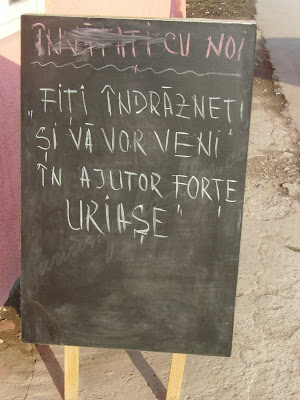 ÎNVĂȚAȚI CU NOI
"FIȚI ÎNDRĂZNEȚI
ȘI VĂ VOR VENI
ÎN AJUTOR FORȚE
URIAȘE"